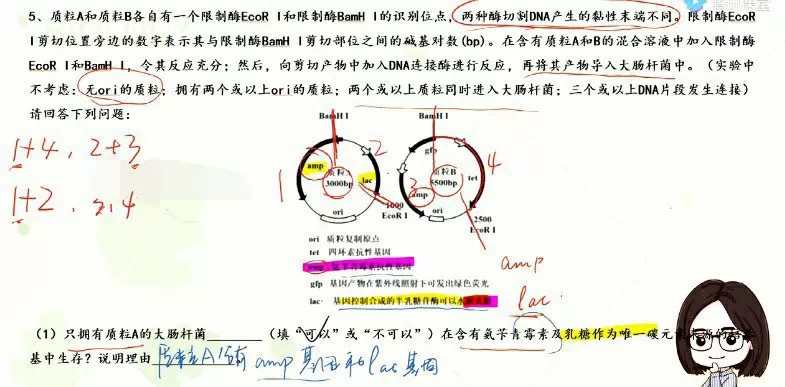 5、质粒A和质粒B各自有一个限制酶EcoR I和限制酶BamH I的识别位点,两种酶切割DNA产生的黏性末端不同。限制酶EcoR
I剪切位置旁边的数字表示其与限制酶BamH I剪切部位之间的碱基对数(bp)。在含有质粒A和B的混合溶液中加入限制酶
EcoR I和BamH I,令其反应充分;然后,向剪切产物中加入DNA连接酶进行反应,再将其产物导入大肠杆菌中。(实验中
不考虑:无ori的质粒;拥有两个或以上ori的质粒;两个或以上质粒同时进入大肠杆菌;三个或以上DNA片段发生连接)
请回答下列问题:
1+4,2+3
1+2
BamH I
BamH I
1
amp
2
lac
3000bp
ori
1000
EcoR I
gfp
质粒B
5500bp
tet
4
3
amp
ori
2500
EcoR I
ori 质粒复制原点
tet 四环素抗性基因
amp 氨苄青霉素抗性基因
gfp 基因产物在紫外线照射下可发出绿色荧光
lac 基因控制合成的半乳糖苷酶可以水解乳糖
amp
lac
(1)只拥有质粒A的大肠杆菌______(填“可以”或“不可以”)在含有氨苄青霉素及乳糖作为唯一碳元素来源的培养
基中生存?说明理由 质粒A含有amp基因和lac基因